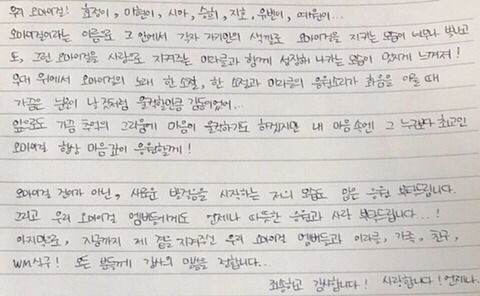 우리 오마이걸! 효정이, 미현이, 시아, 승희, 지호, 유빈이, 아린이...
오마이걸이라는 이름으로 그 안에서 각자 자기만의 색깔로 오마이걸을 지키는 모습이 너무나 빛나고
도, 그런 오마이걸을 사랑으로 지켜주는 미라클과 함께 성장해 나가는 모습이 멋지게 느껴져!
무대 위에서 오마이걸의 노래 한 소절, 한 소절과 미라클의 응원소리가 화음을 이룰 때
가끔은 눈물이 날 것처럼 울컥할만큼 감동이었어...
앞으로도 가끔 추억의 그리움에 마음이 울컥하기도 하겠지만 내 마음속엔 그 누구보다 최고인
오마이걸 항상 마음 깊이 응원할게!
오마이걸 진이가 아닌, 새로운 발걸음을 시작하는 저의 모습도 많은 응원 부탁드립니다.
그리고 우리 오마이걸 멤버들에게도 언제나 따뜻한 응원과 사랑 부탁드립니다...!
마지막으로, 지금까지 제 곁을 지켜주신 우리 오마이걸 멤버들과 미라클, 가족, 친구,
WM식구! 모든 분들께 감사의 말씀을 전합니다...
죄송하고 감사합니다! 사랑합니다! 언제나.